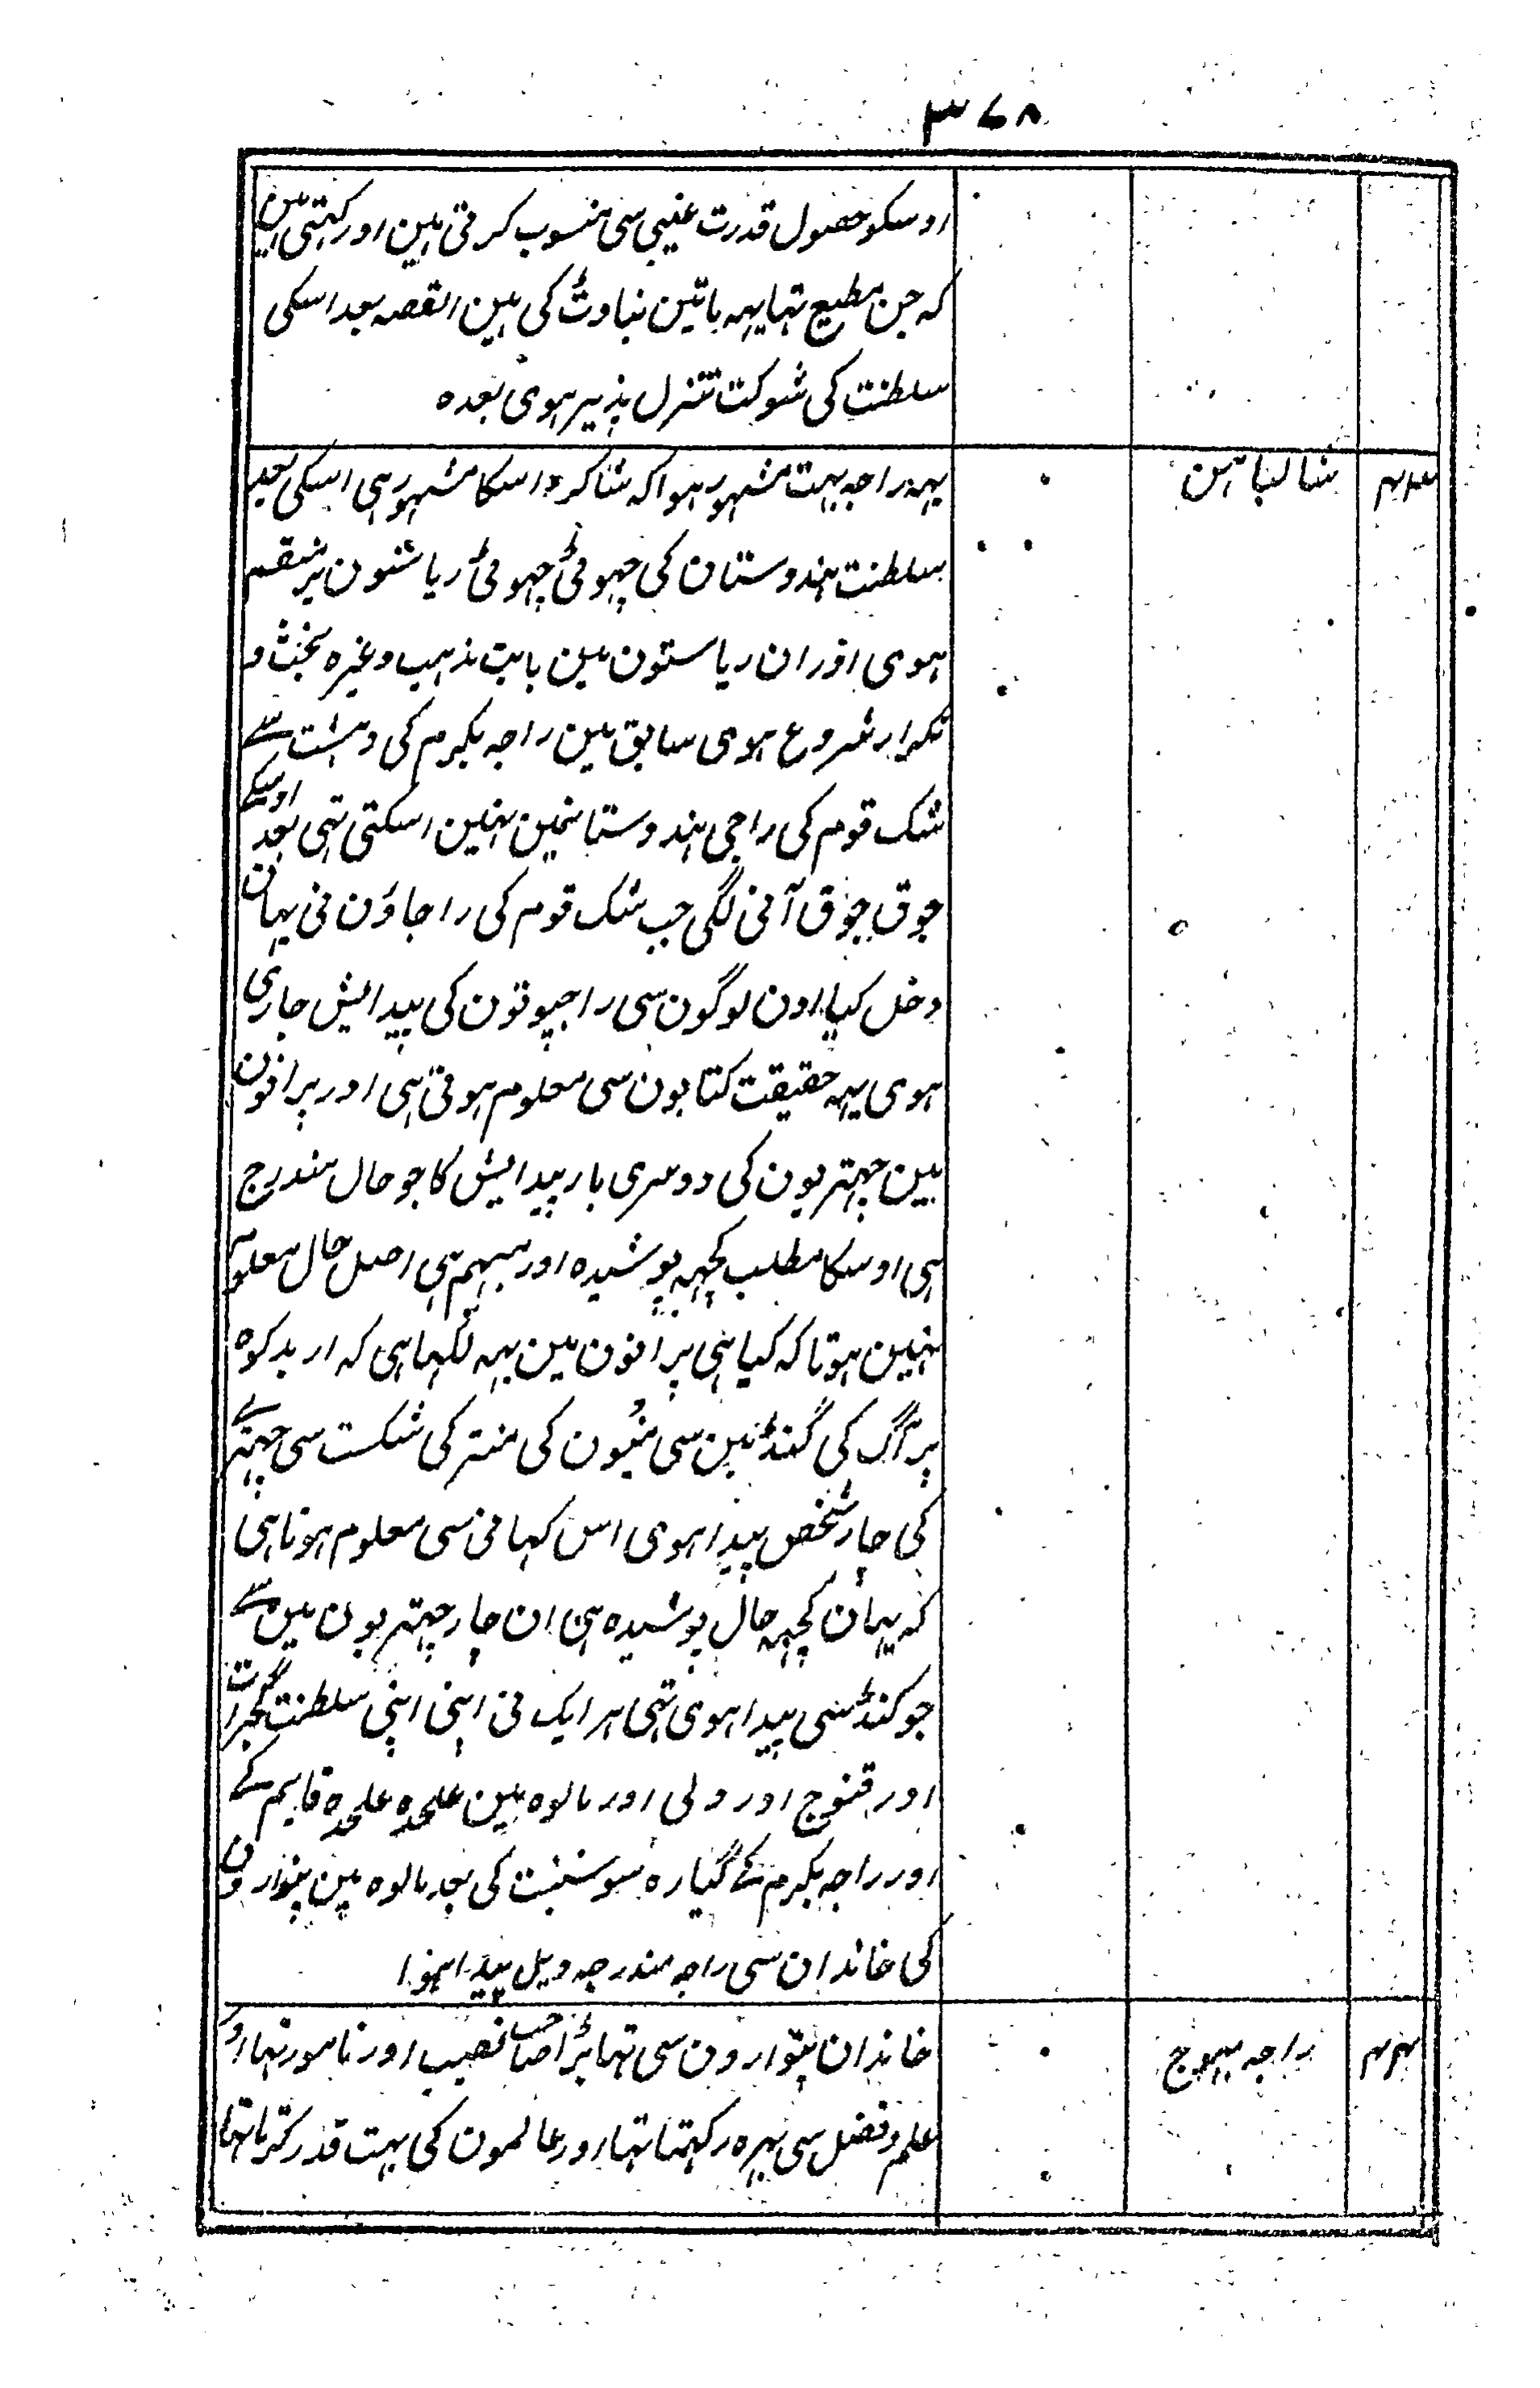 ۳۶۸
اوسکو حصول قدرت غیبی سی منسوب کرتی ہین اور کہتی ہین
کہ جن مطیع تہا یہہ باتین بناوٹ کی ہین القصہ بعد اسکی
سلطنت کی شوکت تنزل پذیر ہوی بعدہ
شالباہن
یہہ راجہ بہت مشہور ہوا کہ شاکہ اسکا مشہور ہی اسکی بعد
سلطنت ہندوستان کی چہوٹی چہوٹی ریاستون پر منقسم
ہوی اور ان ریاستون مین بابت مذہب وغیرہ بحث و
تکرار شروع ہوی سابق مین راجہ بکرم کی دہشت سے
شک قوم کی راجی ہندوستانمین نہین اسکتی تہی بعد اوسکے
جوق جوق آنی لگی جب شک قوم کی راجاؤن نی یہان
دخل کیا اون لوگون سی راجپوتون کی پیدایش جاری
ہوی یہہ حقیقت کتابون سی معلوم ہوتی ہی اور پرانون
مین چہتریون کی دوسری بار پیدایش کا جو حال مندرج
ہی اوسکا مطلب کچہہ پوشیدہ اور مبہم ہی اصل حال معلوم
نہین ہوتا کہ کیا ہی پرانون مین یہہ لکہا ہی کہ اربد کوہ
پر آگ کی کنڈ مین سی منیون کی منتر کی شکست سی چہتری
کی چار شخص پیدا ہوی اس کہانی سی معلوم ہوتا ہی
کہ یہان کچہہ حال پوشیدہ ہی ان چار چہتریون مین سے
جو کنڈ سی پیدا ہوی تہی ہر ایک نی اپنی اپنی سلطنت گجرات
اور قنوج اور دلی اور مالوہ مین علحدہ علحدہ قایم کے
اور راجہ بکرم کے گیارہ سو سنبت کی بعد مالوہ مین پنوارون
کی خاندان سی راجہ مندرجہ ذیل پیدا ہوا
راجہ بہوج
خاندان پنوارون سی تہا بڑا صاحب نصیب اور نامور تہا اور
علم و فضل سی بہرہ رکہتا تہا اور عالمون کی بہت قدر کرتا تہا